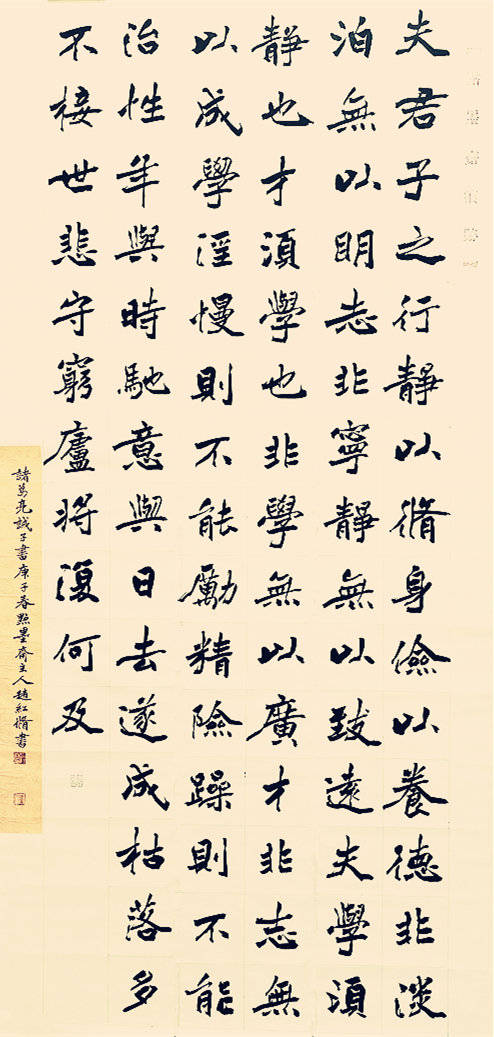 夫君子之行靜以脩身儉以養德非淡
泊無以明志非寧靜無以致遠夫學須
靜也才須學也非學無以廣才非志無
以成學淫慢則不能勵精險躁則不能
治性年與時馳意與日去遂成枯落多
不接世悲守窮廬將復何及
諸葛亮誡子書庚子春點墨齋主人趙紅脩書